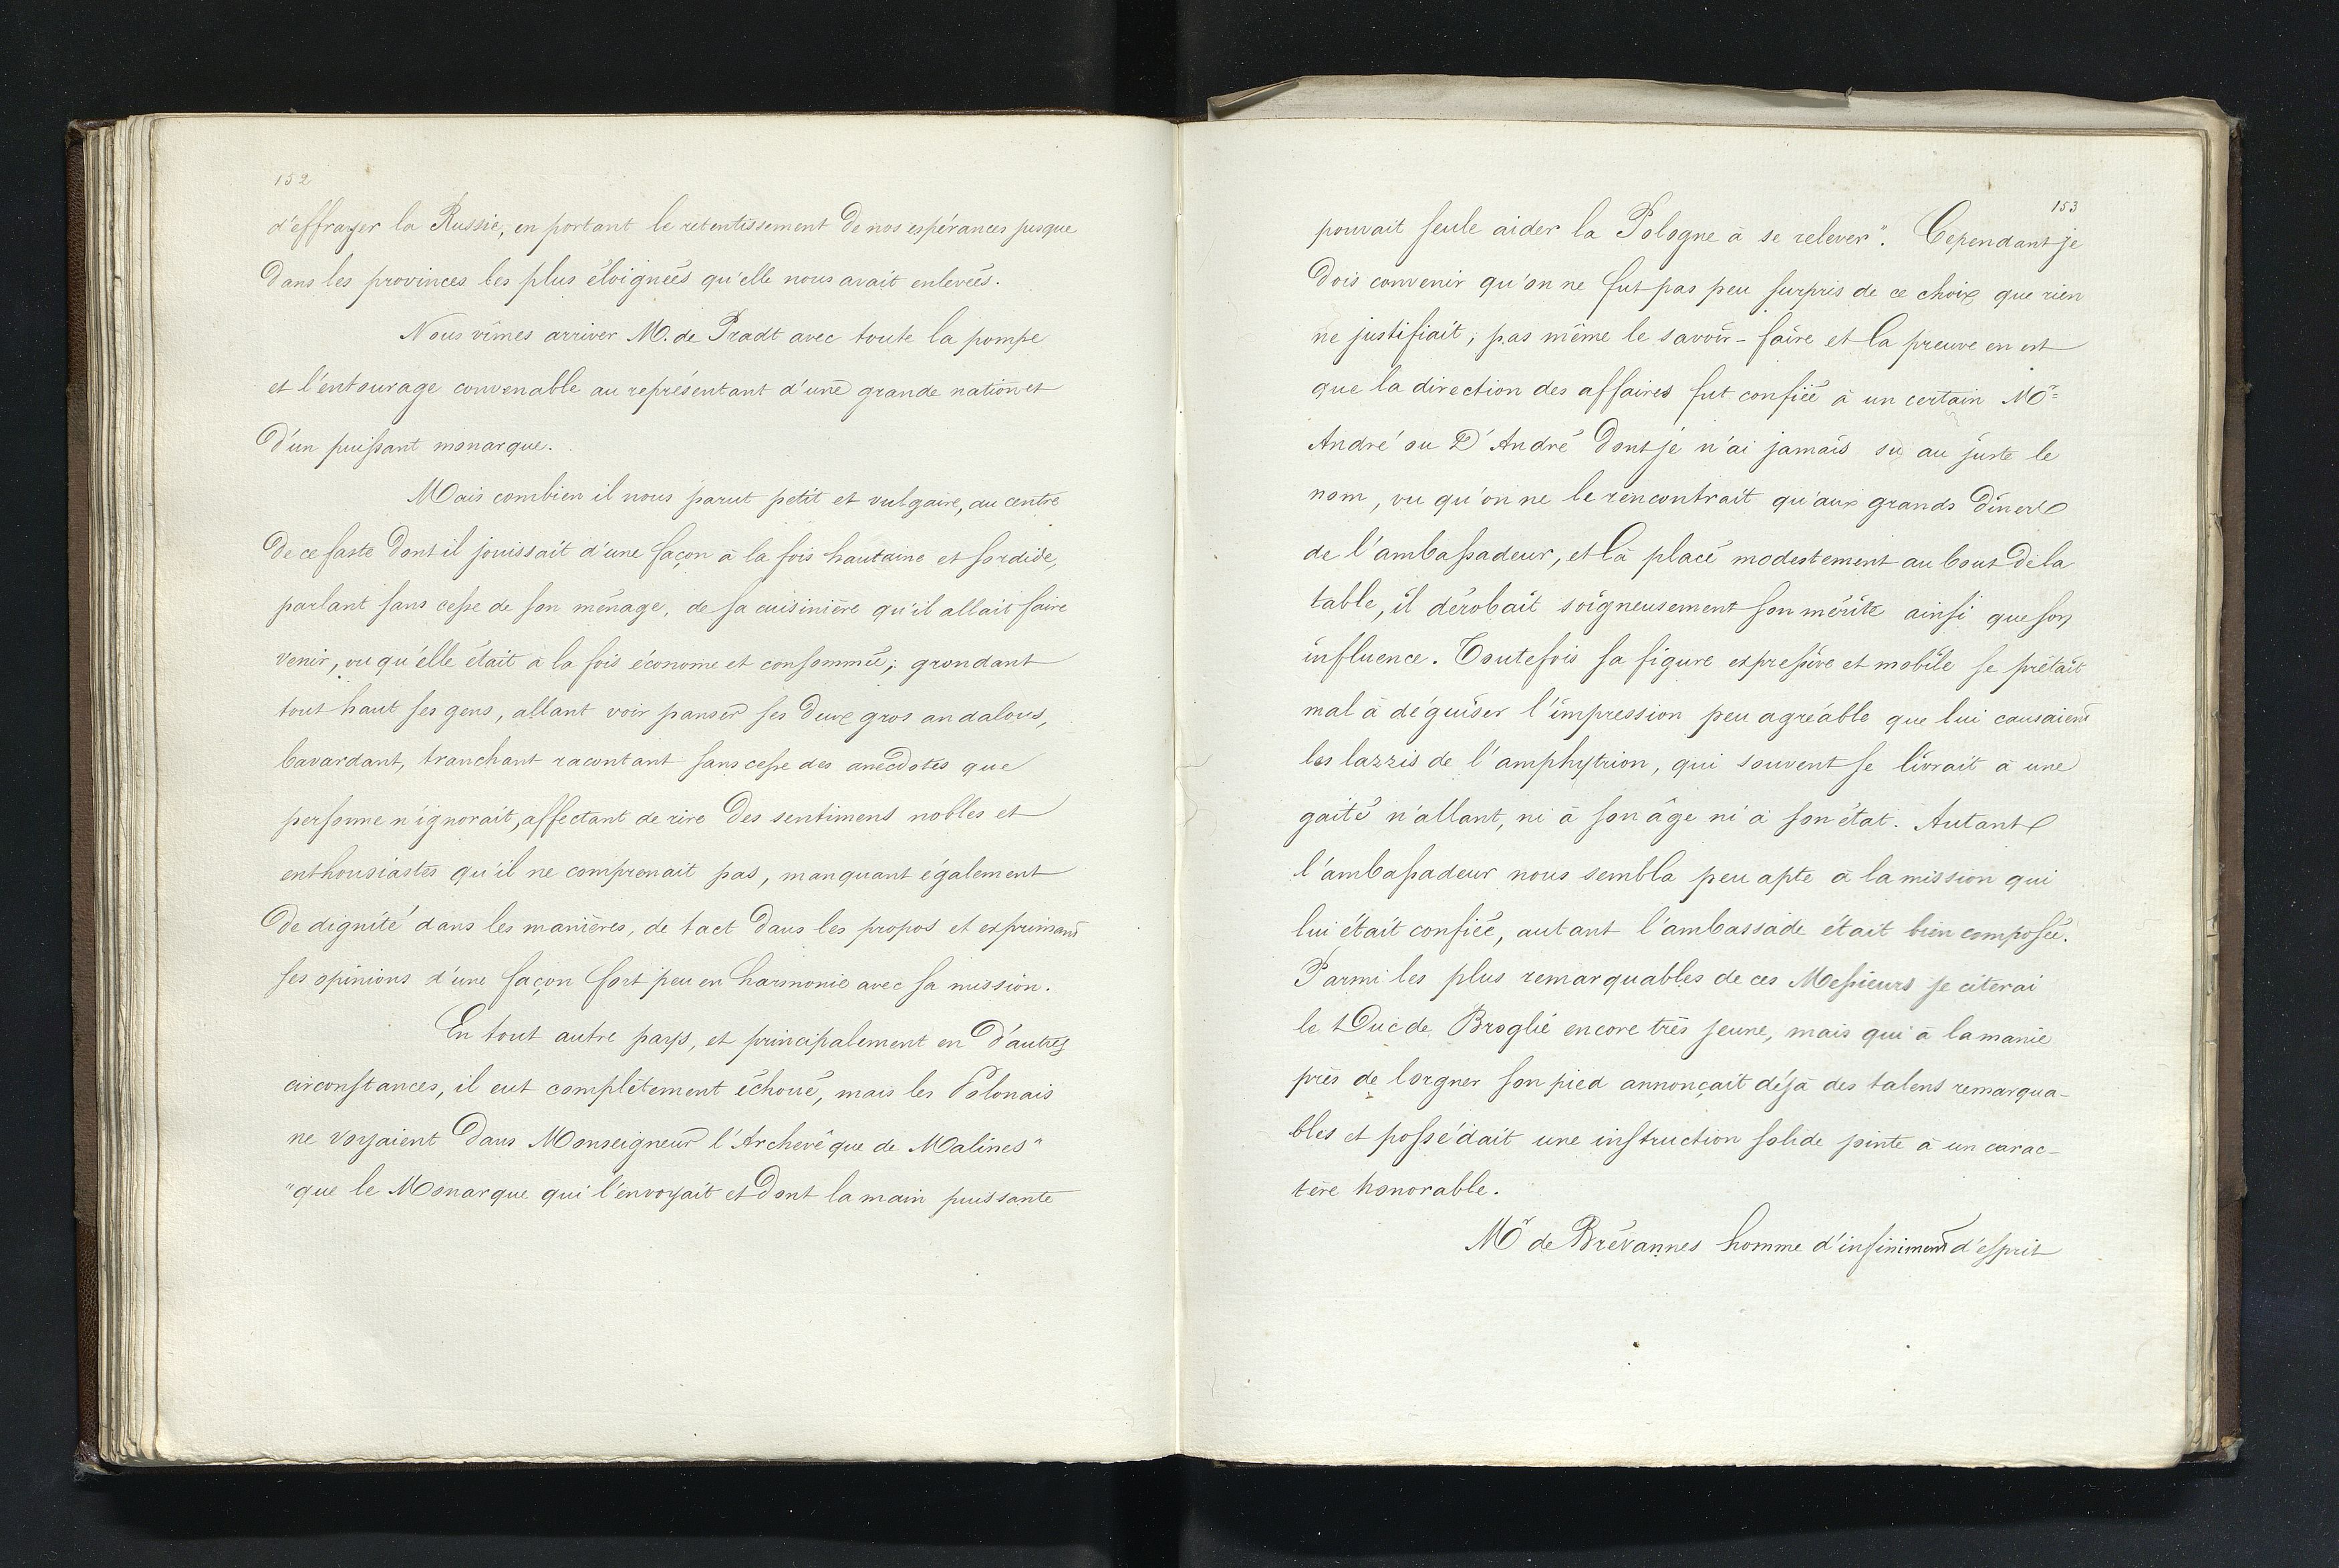 152
d'effrayer la Russie, en portant le retentissement de nos espérances jusque
dans les provinces les plus éloignées qu'elle nous avait enlevées.
Nous vîmes arriver M. de Pradt avec toute la pompe
et l'entourage convenable au représentant d'une grande nation et
d'un puissant monarque.
Mais combien il nous parut petit et vulgaire, au centre
de ce faste dont il jouissait d'une façon à la fois hautaine et sordide,
parlant sans cesse de son ménage, de sa cuisinière qu'il allait faire
venir, vu qu'elle était à la fois économe et consommée; grondant
tout haut ses gens, allant voir panser ses deux gros andalous,
bavardant, tranchant racontant sans cesse des anecdotes que
personne n'ignorait, affectant de rire des sentimens nobles et
enthousiastes qu'il ne comprenait pas, manquant également
de dignité dans les manières, de tact dans les propos et exprimant
ses opinions d'une façon fort peu en harmonie avec sa mission.
En tout autre pays, et principalement en d'autres
circonstances, il eut complètement échoué, mais les Polonais
ne voyaient dans Monseigneur l'Archevêque de Malines"
"que le Monarque qui l'envoyait et dont la main puissante
153
pouvait seule aider la Pologne à se relever". Cependant je
dois convenir qu'on ne fut pas peu surpris de ce choix que rien
ne justifiait, pas même le savoir-faire et la preuve en est
que la direction des affaires fut confiée à un certain Mr
André ou D'André dont je n'ai jamais su au juste le
nom, vu qu'on ne le rencontrait qu'aux grands dîners
de l'ambassadeur, et là placé modestement au bout de la
table, il dérobait soigneusement son mérite ainsi que son
influence. Toutefois sa figure expressive et mobile se prêtait
mal à déguiser l'impression peu agréable que lui causaient
les lazzis de l'amphytrion, qui souvent se livrait à une
gaité n'allant, ni à son âge ni à son état. Autant
l'ambassadeur nous sembla peu apte à la mission qui
lui était confiée, autant l'ambassade était bien composée.
Parmi les plus remarquables de ces Messieurs je citerai
le Duc de Broglie encore très jeune, mais qui à la manie
près de lorgner son pied annonçait déjà des talens remarqua-
bles et possédait une instruction solide jointe à un carac-
tère honorable.
Mr de Brévannes homme d'infiniment d'esprit